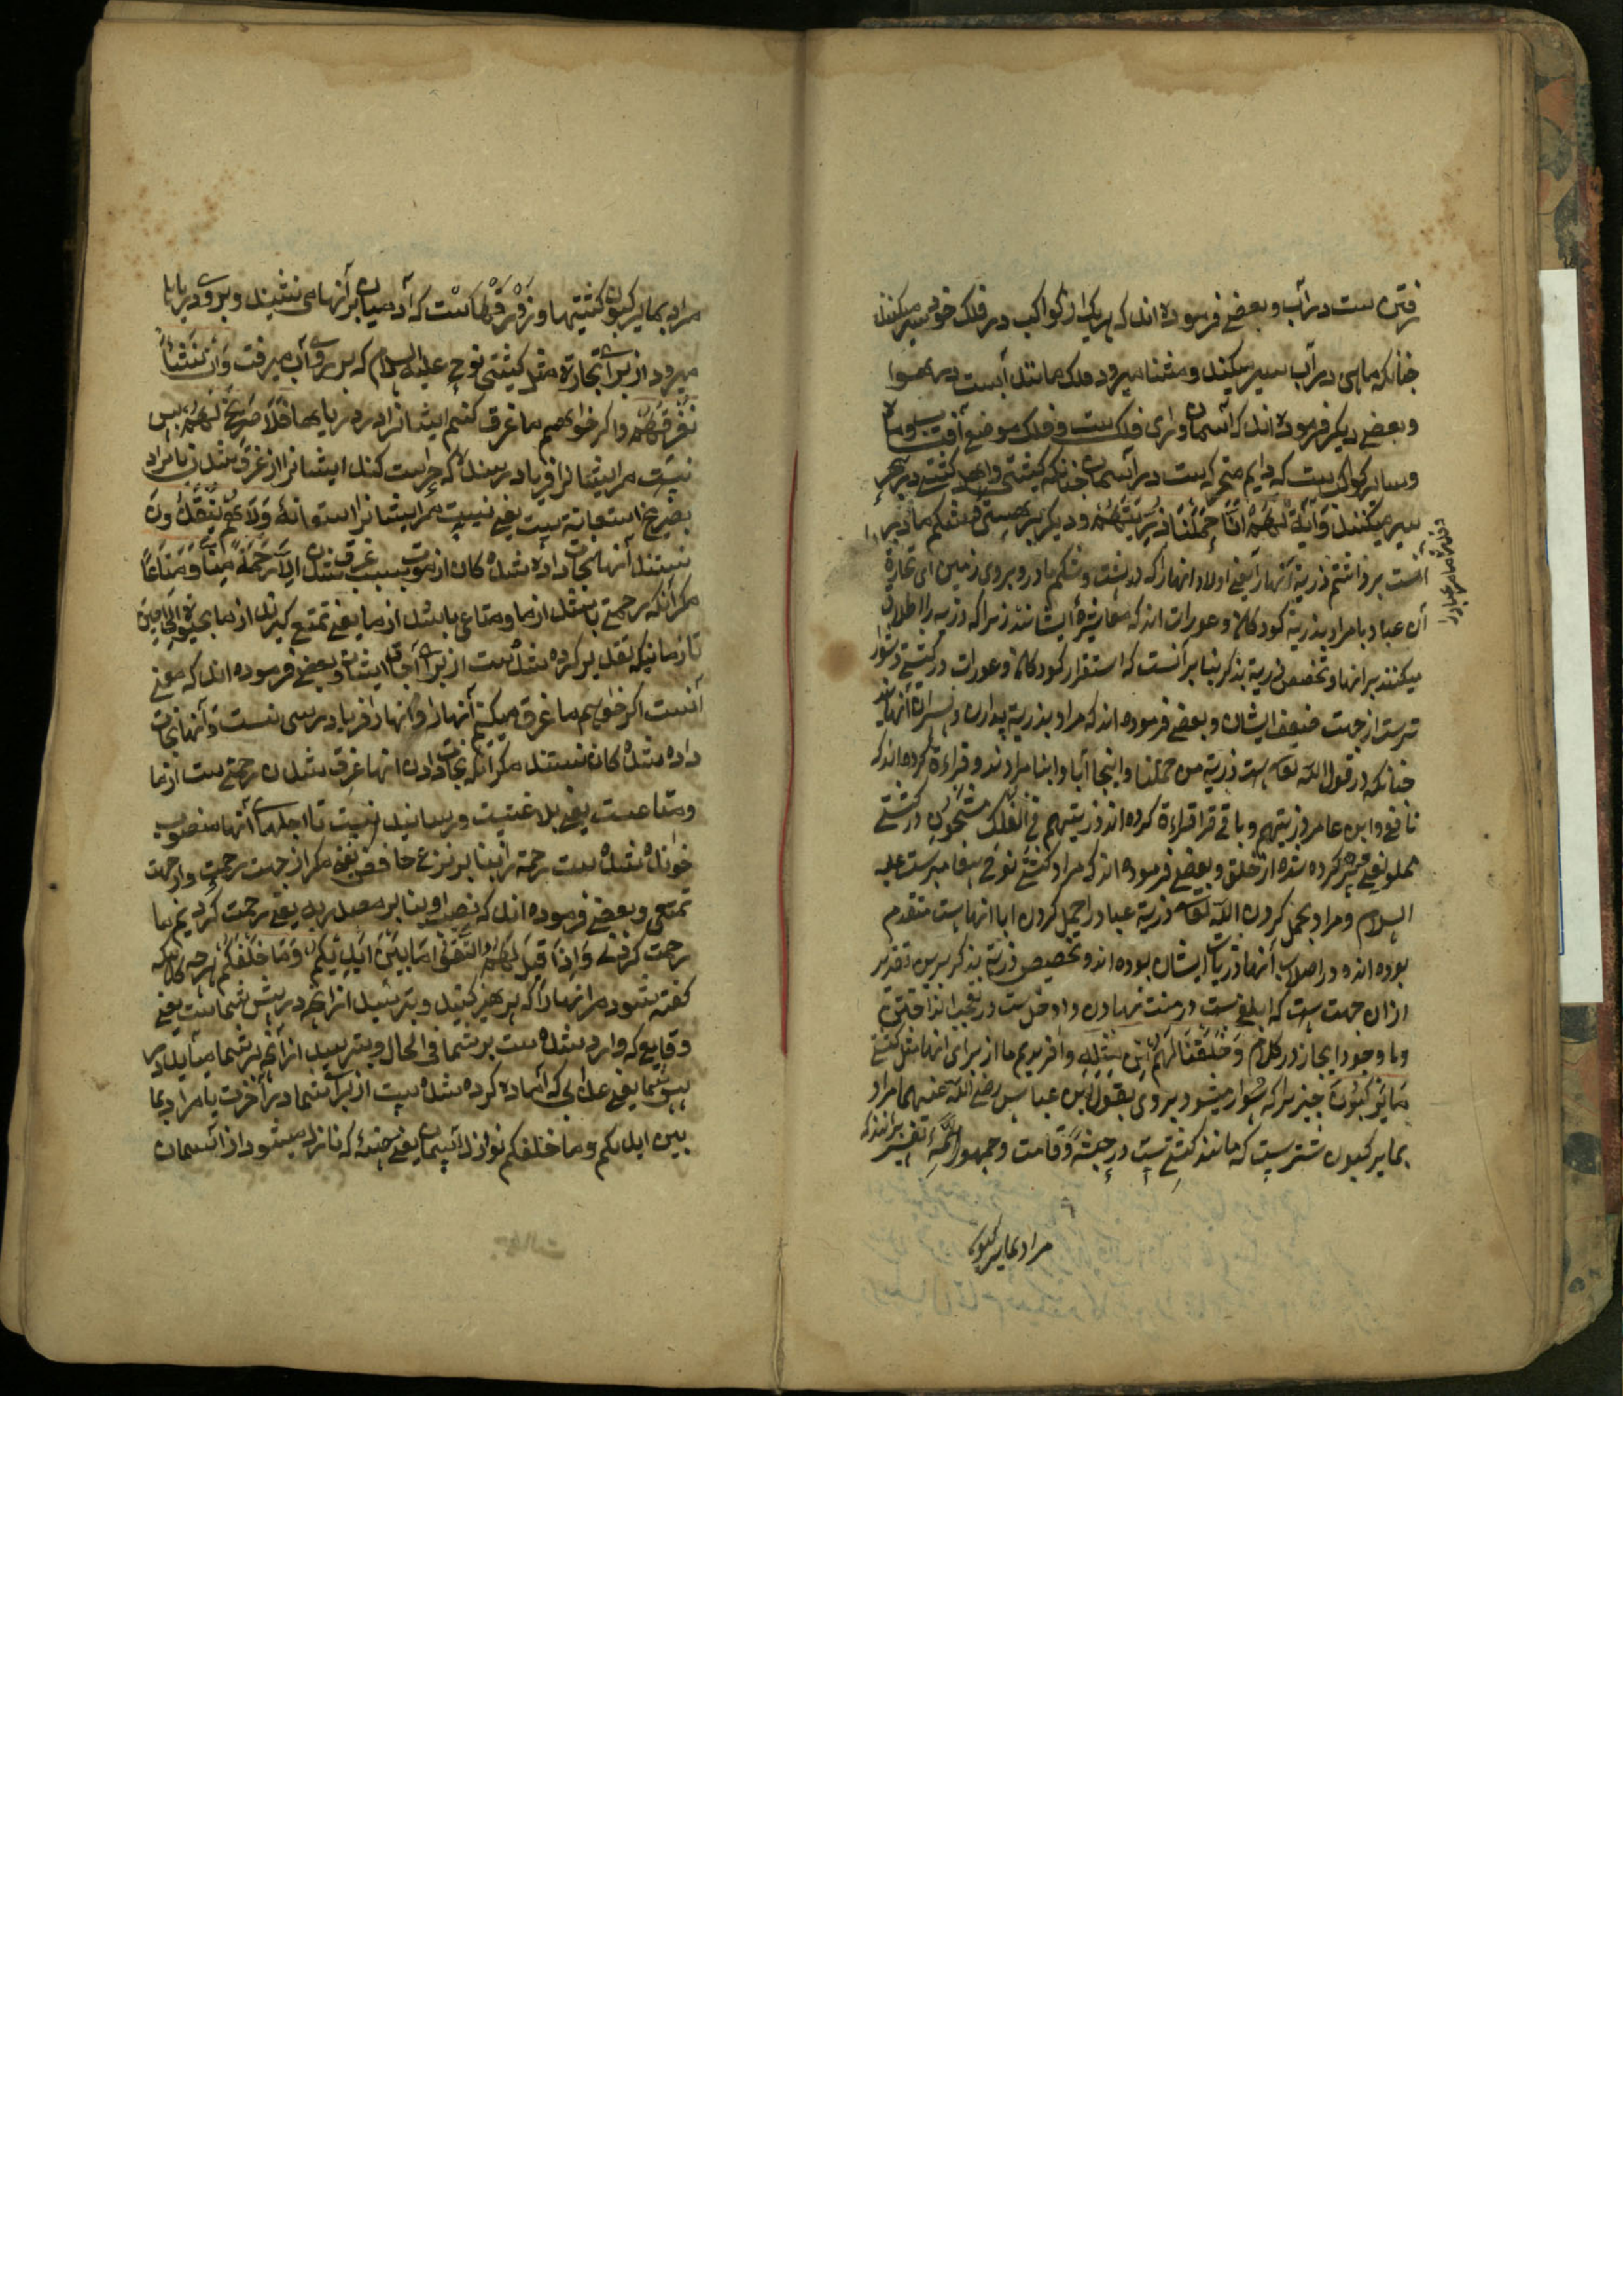 رفتن ست در آب و بعضی فرموده اند که هریک از کواکب در فلک خود سیر میکنند
چنانکه ماهی در آب سیر میکند و مثنا میرود فلک مانند آبست در هوا
و بعضی دیگر فرموده اند که آسمان ورای فلک ست و فلک موضع آفتاب و ماه
و سایر کواکب ست که دایم متحرک ست در آسمان چنانکه کشتی در بحر
سیر میکنند وَآيَةٌ لَهُمْ أَنَّا حَمَلْنَا ذُرِّيَّتَهُمْ و دیگر بر هستی ما در
است برداشتم ذریة آنهارا یعنی اولاد انهارا که در پشت و شکم مادر و بروی زمین ای تجارة
آن عباد یا مراد بذریة کودکان و عورات اند که معاشرهٔ ایشانند زیرا که ذریه را اطلاق
میکنند بر انها و تخصیص ذریة بذکر بنا بر آنست که استقرار کودکان و عورات در کشتی دشوار
ترست از جهت ضعف ایشان و بعضی فرموده اند که مراد بذریة پدارن و
چنانکه در قول الله تعالی ست ذریة من حملنا و اینجا آبا و ابنا مرادند و قراءة کرده اند که
نافع و ابن عامر ذریتهم و باقی قرا قراءة کرده اند ذریتهم فِي الْفُلْكِ الْمَشْحُونِ در کشتی
مملو یعنی پر کرده شده از خلق و بعضی فرموده اند که مراد کشتی نوح پیغامبرست علیه
السلام و مراد بحمل کردن الله تعالی ذریة عباد را حمل کردن ابا انهاست متقدم
بوده اند و در اصلاب آنها ذریات ایشان بوده اند و تخصیص ذریة بذکر برین تقدیر
ازان جهت ست که ابلغ ست در منت نهادن و ادخل ست در تعجب انداختن
و با وجود ایجاز در کلام وَخَلَقْنَا لَهُمْ مِنْ مِثْلِهِ و آفریدیم ما از برای انها مثل کشتی
مَا يَرْكَبُونَ چیز یرا که سوار میشود بروی بقول ابن عباس رضی الله عنهما مراد
بمایرکبون شتر ست که مانند کشتی ست در جثه و قامت و جمهور ائمهٔ تفسیر برانند که
مراد بمایرکبون
مراد بمایرکبون کشتیها و زورقهاست که آدمیان بر آنها می نشیند و بروی دریا
میرود از برای تجارة مثل کشتی نوح علیه السلام که بر روی آب میرفت وَإِنْ نَشَأْ
نُغْرِقْهُمْ و اگر خواهیم ما غرق کنیم ایشانرا در دریاها فَلَا صَرِيخَ لَهُمْ پس
نیست مر ایشانرا فریاد رسنده که حراست کند ایشانرا از غرق شدن یا مراد
بصریخ استعانة ست یعنی نیست مر ایشانرا استعانة وَلَا هُمْ يُنْقَذُونَ
نیستند آنها نجات داده شده کان از موت بسبب غرق شدن إِلَّا رَحْمَةً مِنَّا وَمَتَاعًا
مگر آنکه رحمتی باشد از ما و متاعی باشد از ما یعنی تمتع گیرند از ما بحیوة إِلَى حِينٍ
تا زمانیکه تقدیر کرده شده ست از برای آجال ایشان و بعضی فرموده اند که معنی
آنست اگر خواهیم ما غرق میکنم آنهارا و آنهارا فریاد رسی نیست و آنها نجات
داده شده کان نیستند مگر آنکه نجات دادن انها غرق شدن رحمتی ست از ما
و متاعست یعنی بلاغیت و رسانیدنیست تا اجلهای آنها منصوب
خوانده شده ست رحمة را بنا بر نزع خافض یعنی مگر از جهت رحمت و از جهت
تمتعی و بعضی فرموده اند که نصب او بنا بر مصدریه یعنی رحمت کردیم ما
رحمت کردنی وَإِذَا قِيلَ لَهُمُ اتَّقُوا مَا بَيْنَ أَيْدِيكُمْ وَمَا خَلْفَكُمْ هرچه کاه که
گفته شود مر انهارا که پرهیز کنید و بترسید از آنچه در پیش شماست یعنی
وقایع که وارد شده ست بر شما فی الحال و بترسید از آنچه بر شما میآید در
پس شما یعنی عذابی که آماده کرده شده ست از برای شما در آخرت یا مراد بما
بین ایدیکم و ما خلفکم نوازل آسمان یعنی که نازل میشود از آسمان